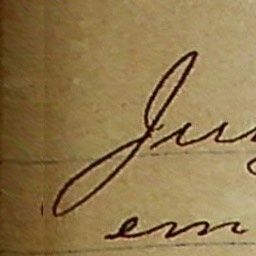 Ju
em